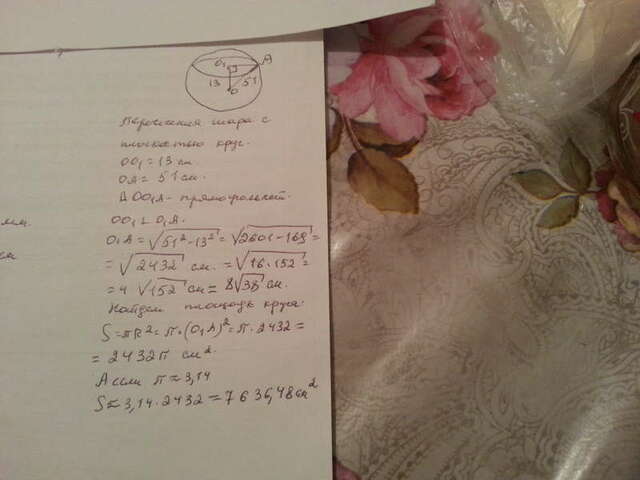 O₁ A
13 51
O
Пересечения шара с
плоскостью круг.
OO₁ = 13 см.
OA = 51 см.
Δ OO₁A - прямоугольной.
мм. OO₁ ⊥ O₁A.
см O₁A = √51² - 13² = √2601 - 169 =
= √2432 см. = √16 · 152 =
= 4 √152 см = 8√38 см.
Найдем площадь круга:
S = πR² = π · (O₁A)² = π · 2432 =
= 2432π см².
А если π ≈ 3,14
S ≈ 3,14 · 2432 = 7636,48 см²